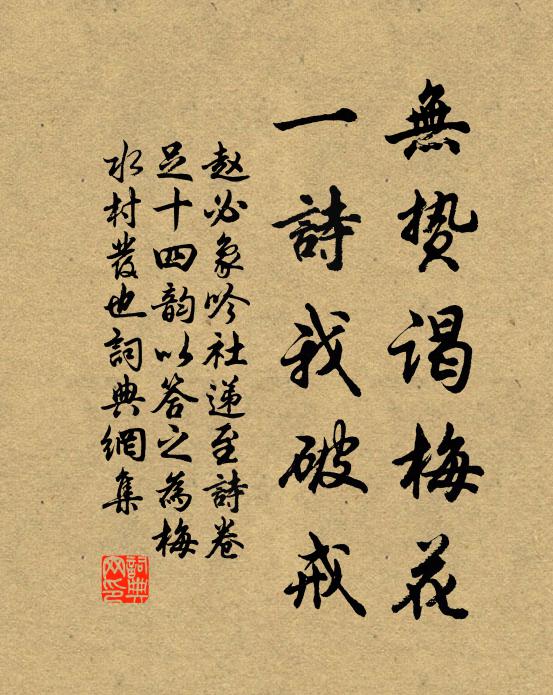 無贽谒梅花
一詩我破戒
赵必象吟社递至詩卷
足十四韵以答之為梅
水村發也詞典網集
詞典网印